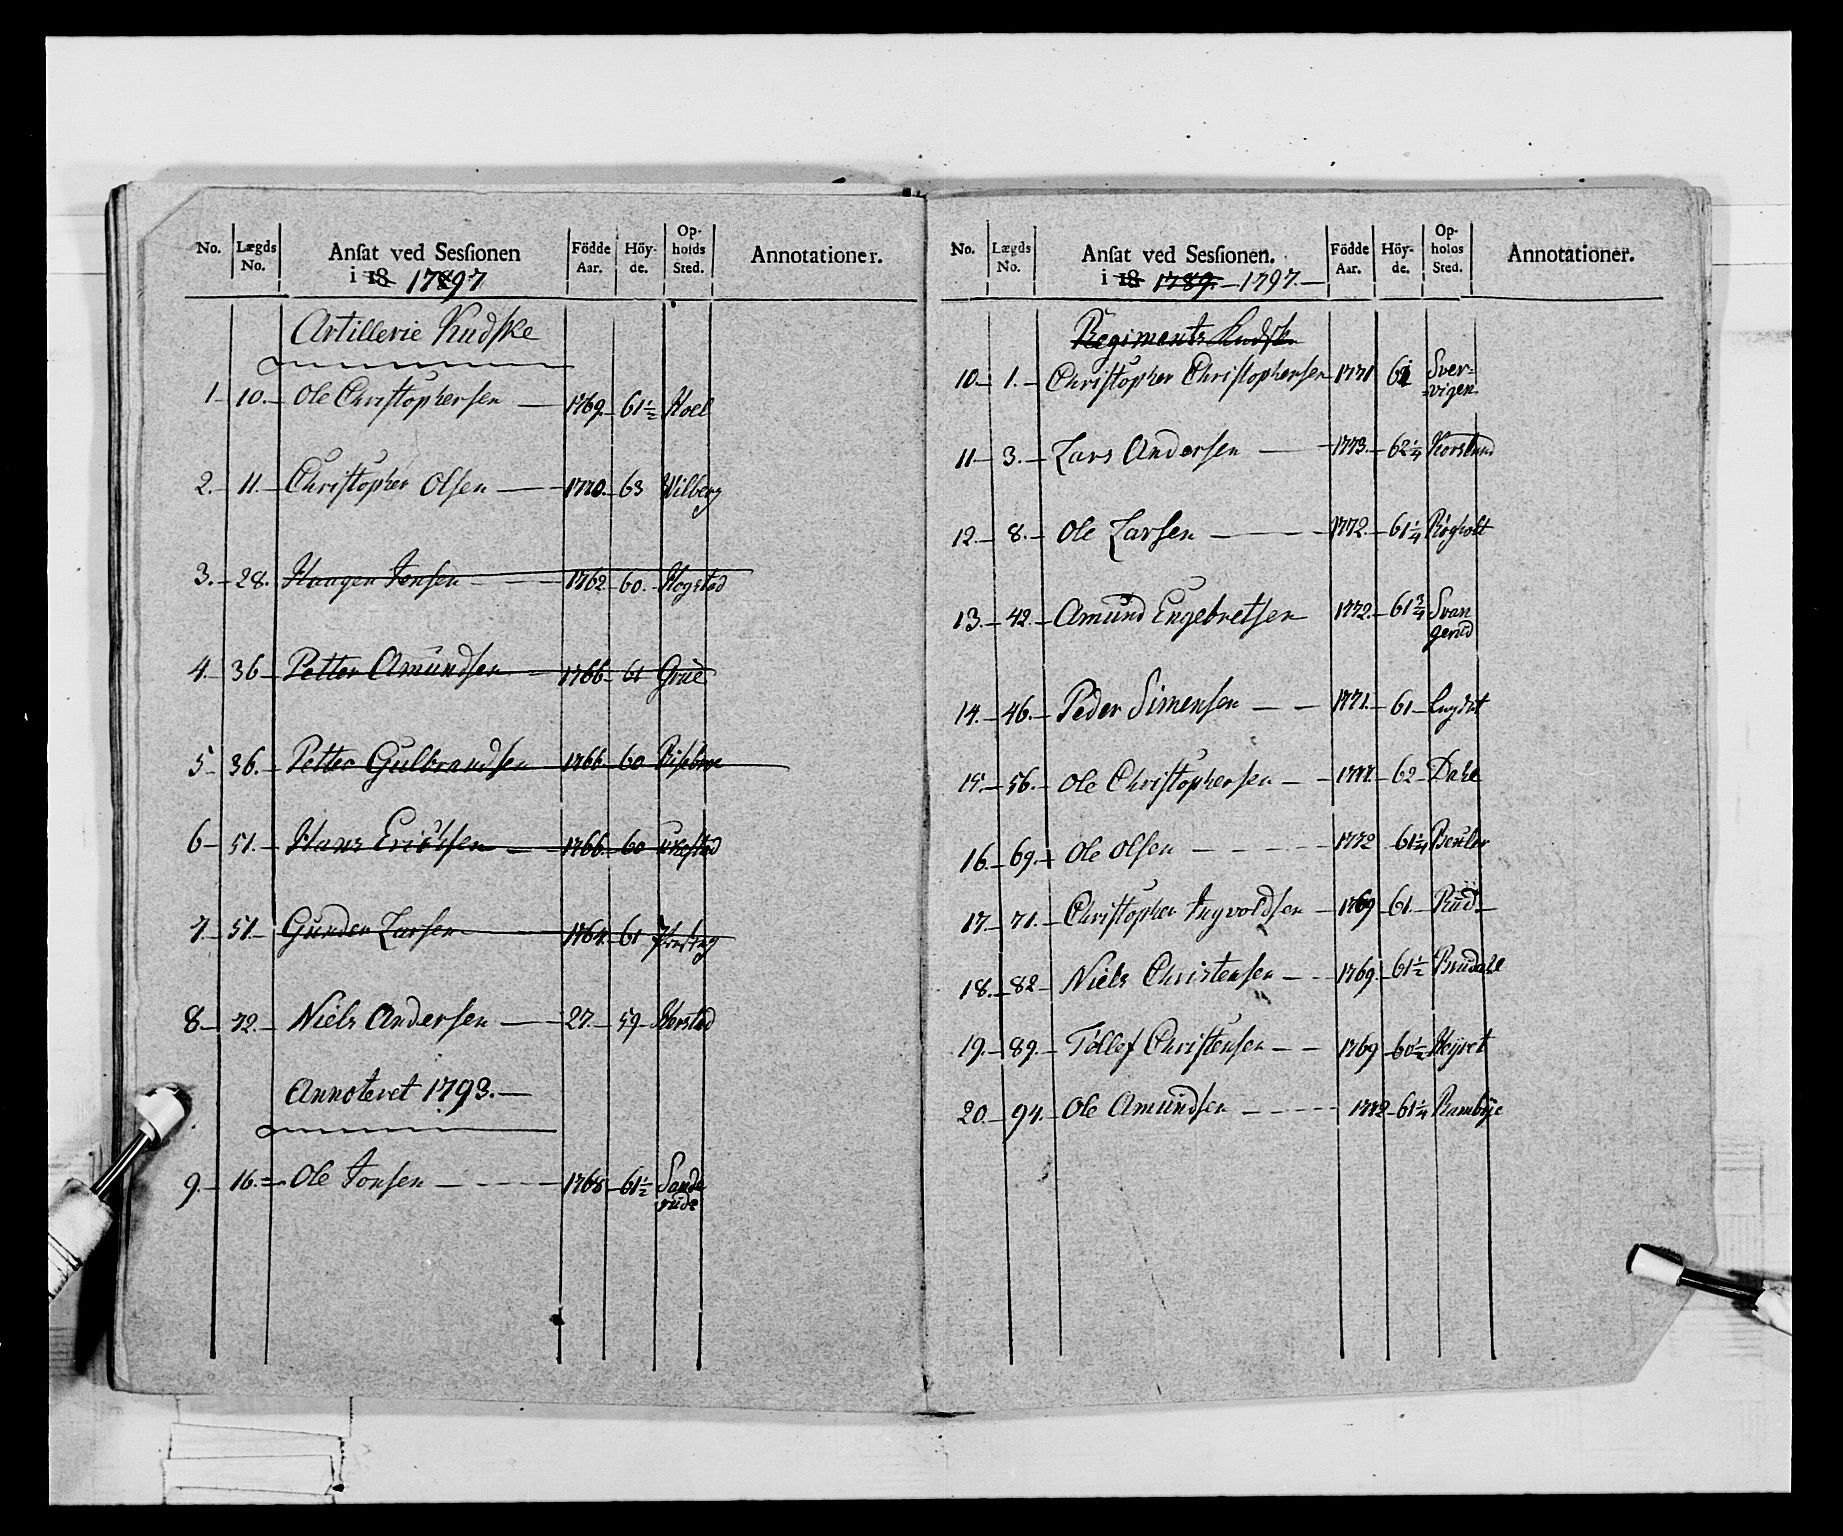 No. Lægds No. Ansat ved Sessionen i 18 1797 Födde Aar. Höyde. Opholds Sted. Annotationer.
Artillerie Kudske
1 10. Ole Christophersen 1769. 61 1/2 Hoel
2. 11. Christopher Olsen 1770. 63 Wilberg
3. 28. Haagen Jensen 1762 60. Hogstad
4. 36 Petter Amundsen 1766 61 Grue
5 36. Petter Gulbrandsen 1766 60
6 51. Hans Ericksen 1766 60
7. 51. Gunder Larsen 1764. 61
8 72. Niels Andersen 27. 59 Herstad
Annoteret 1793.
9. 16. Ole Jonsen 1768 61 1/2 Sande
rude
No. Lægds No. Ansat ved Sessionen. i 18 1789. 1797. Födde Aar. Höyde. Opholds Sted. Annotationer.
Regiments Kudsk
10. 1. Christopher Christophersen 1771 61 Sver-
vigen
11 3. Lars Andersen 1773. 62 1/4 Korslund
12. 8. Ole Larsen 1772. 61 1/4 Rögholt
13. 42. Amund Engebretsen 1772. 61 3/4 Svan
gerud
14. 46. Peder Simensen 1771. 61
15. 56. Ole Christophersen 62 Dahl
16. 69. Ole Olsen 1772 61 1/4
17. 71. Christopher Ingvoldsen 1769 61. Rud
18. 82 Niels Christensen 1769. 61 1/2 Brudahl
19. 89. Tollef Christensen 1769 60 1/2
20. 94. Ole Amundsen 1772 61 1/4